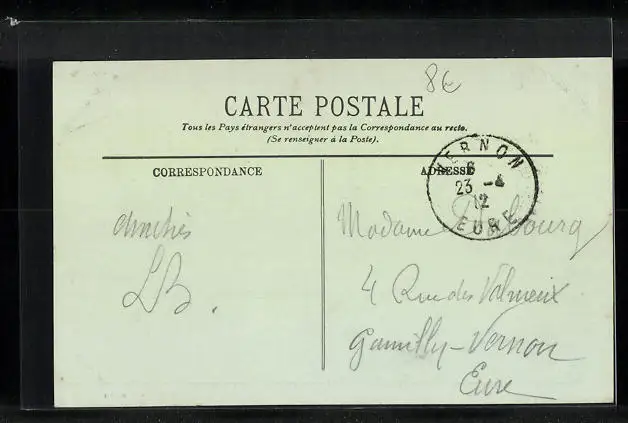 8€
CARTE POSTALE
Tous les Pays étrangers n'acceptent pas la Correspondance au recto.
(Se renseigner à la Poste).
CORRESPONDANCE
ADRESSE
VERNON
23 - 4
12
EURE
Amitiés
LB.
Madame
4 Rue des
Gamilly-Vernon
Eure